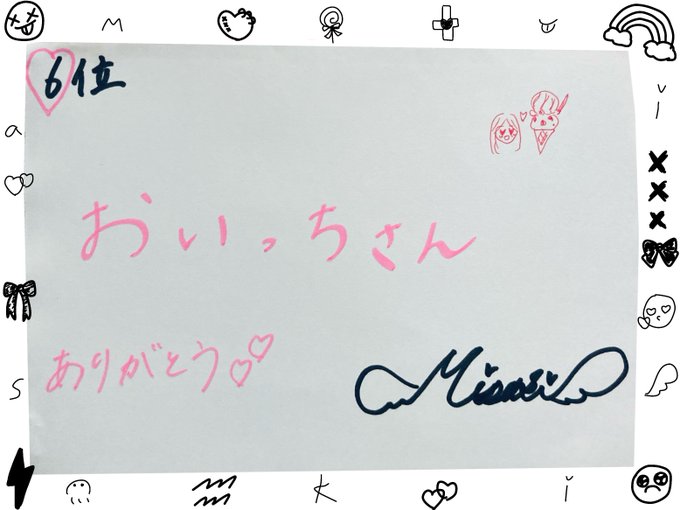 M
i
a
6位
おいっちさん
ありがとう
Misaki
s
K i